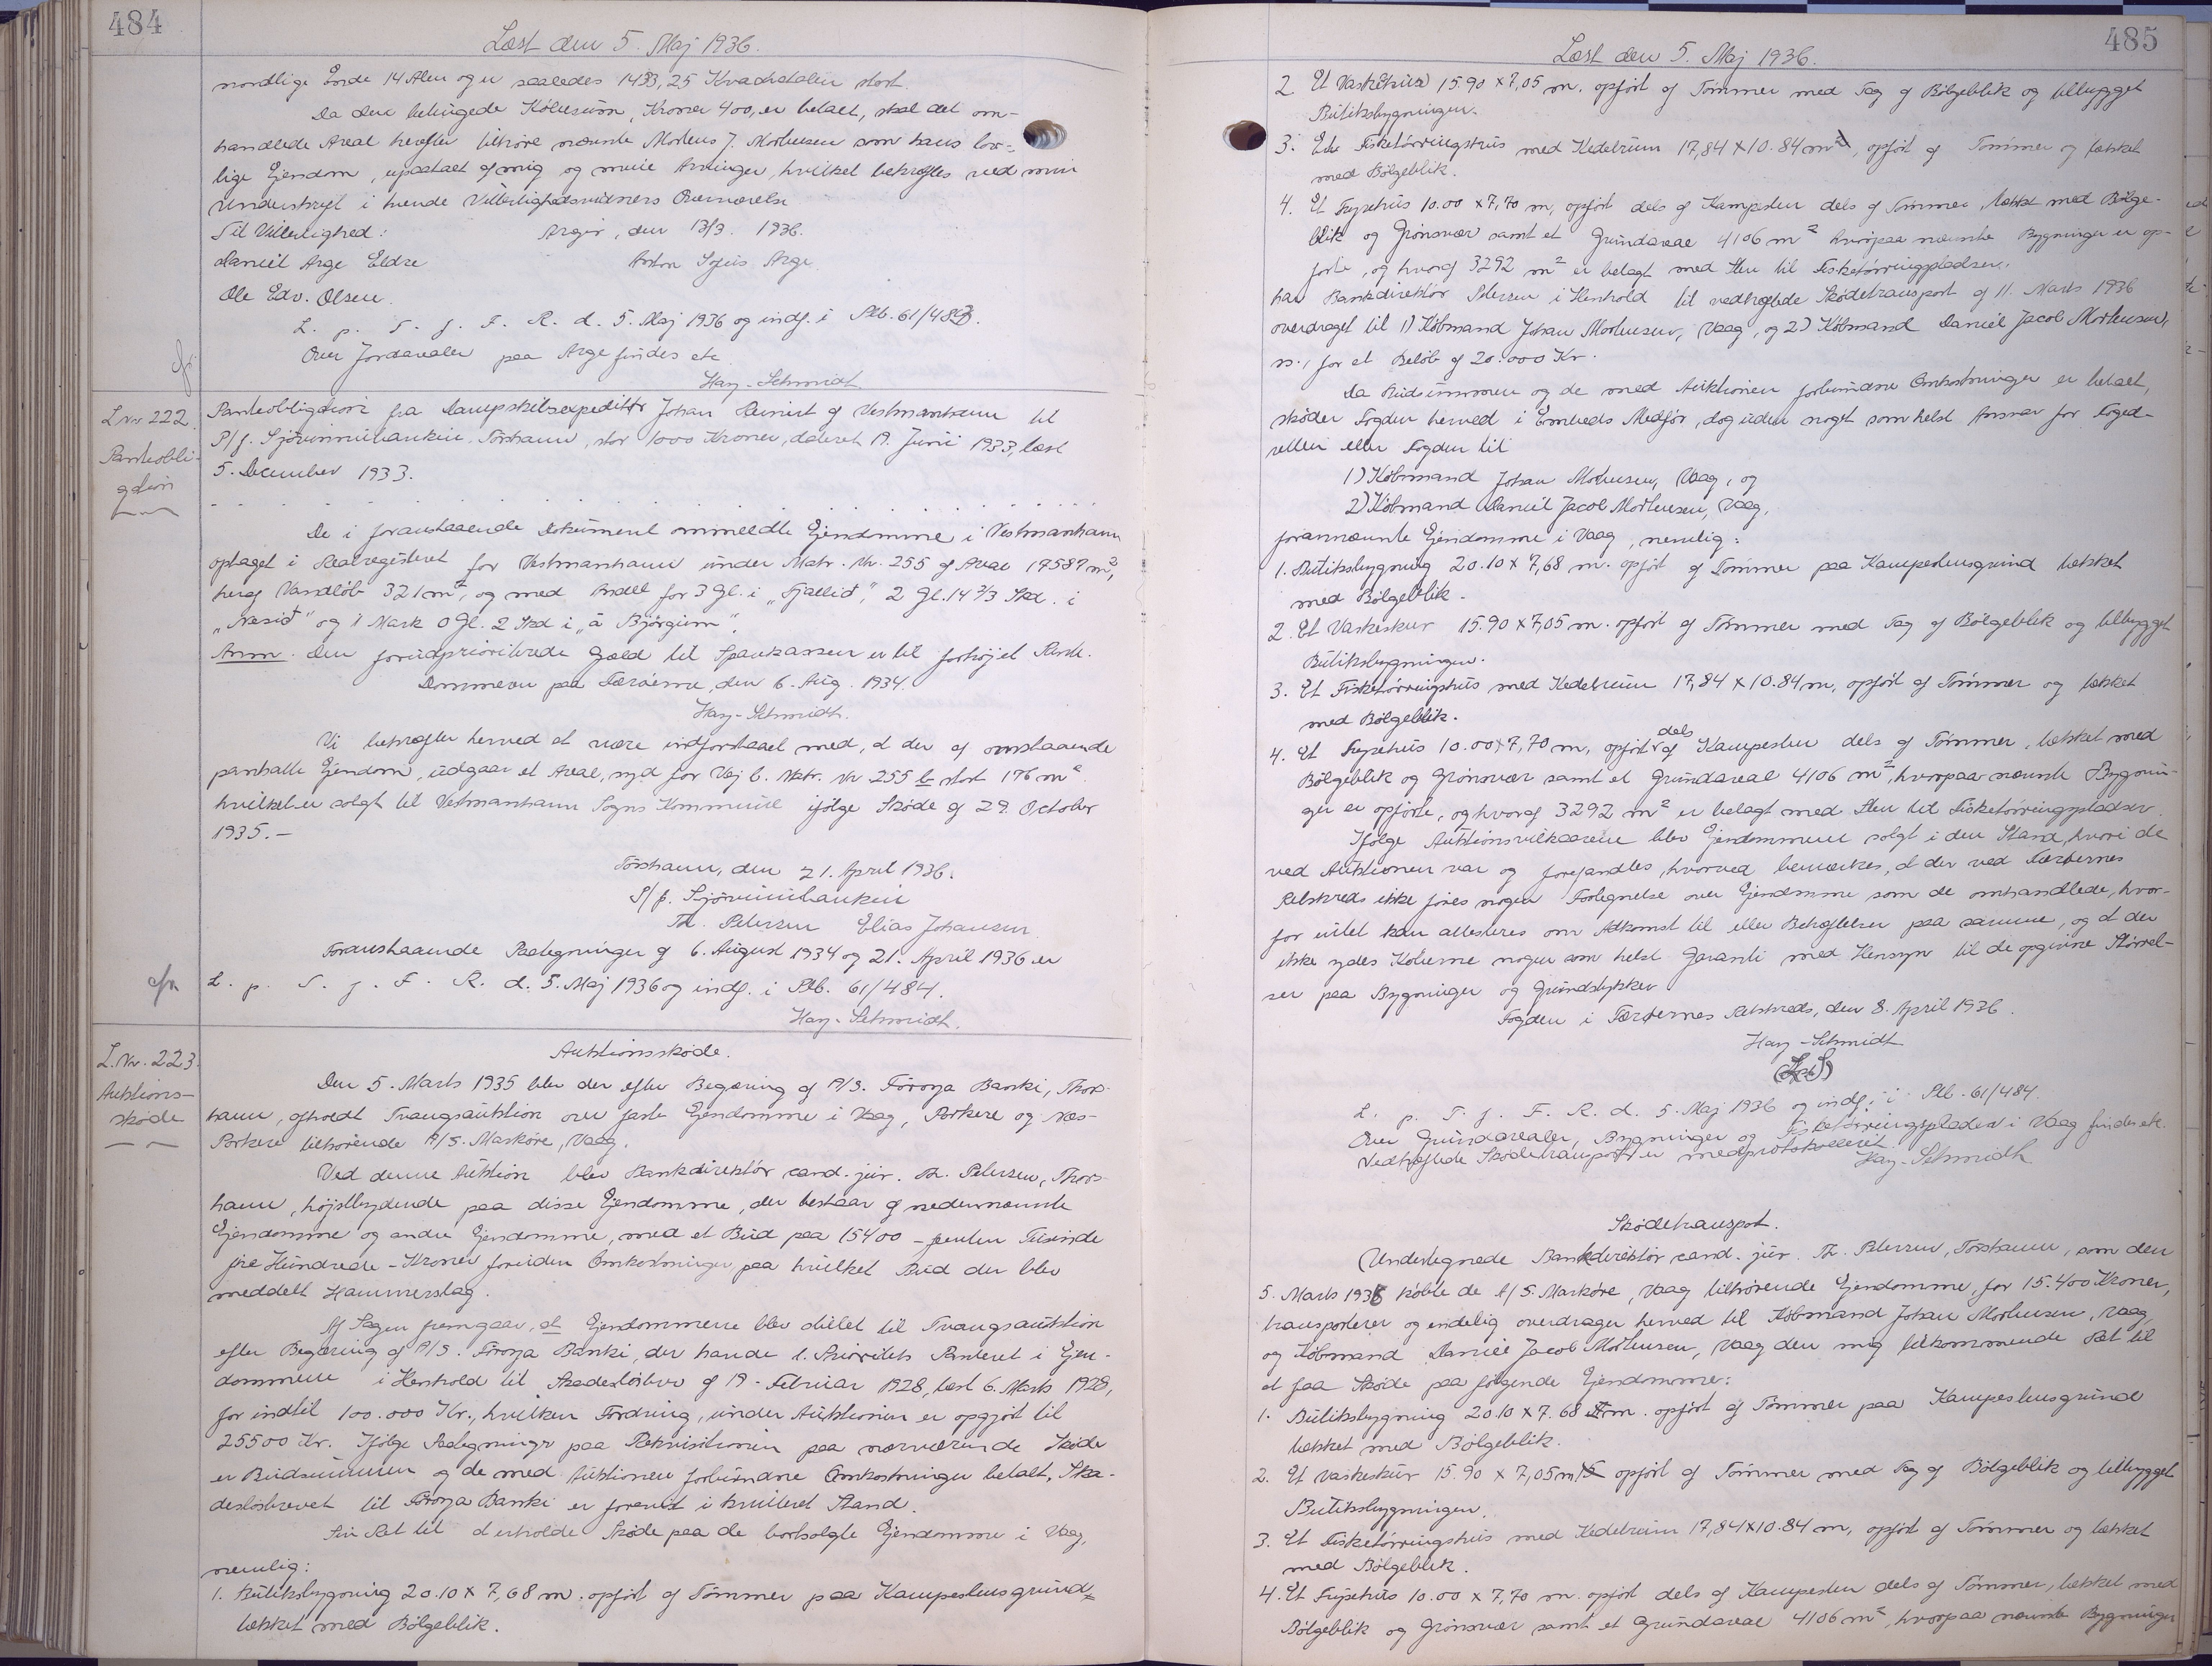 484
Læst den 5. Maj 1936.
nordlige Ende 14 Alen og er saaledes 1433,25 Kvadratalen stort.
Da den betingede Købesum, Kroner 400, er betalt, skal det om-
handlede Areal herefter tilhøre nævnte Mortens J. Mortensen som hans lov-
lige Ejendom, upaatalt af mig og mine Arvinger, hvilket bekræftes ved min
Underskrift i tvende Vitterlighedsvidners Overværelse
Til Vitterlighed: Argir, den 13/3. 1936.
Daniel Arge Eldre Anton Sofus Arge
Ole Edv. Olsen.
L. p. T. f. F. R. d. 5. Maj 1936 og indf. i Ptb. 61/483.
Over Jordarealer paa Arge findes etc
Hay-Schmidt
L. Nr. 222.
Panteobli-
gation
Panteobligation fra Dampskibsexpeditør Johan Reinert af Vestmanhavn til
P/f. Sjóvinnubankin, Torshavn, stor 1000 Kroner, dateret 19. Juni 1933, læst
5. December 1933.
De i foranstaaende Dokument ommeldte Ejendomme i Vestmanhavn
optaget i Realregisteret for Vestmanhavn under Matr. Nr. 255 af Areal 17587 m²,
heraf Vandløb 321 m², og med Andel for 3 Gl. i "Fjallid", 2 Gl. 14 2/3 Skd. i
"Nesið" og 1 Mark 0 Gl. 2 Skd i "á Bjørgum".
Anm. Den forudprioriterede Gæld til Sparekassen er til forhøjet Rente.
Dommeren paa Færøerne, den 6. Aug. 1934.
Hay-Schmidt.
Vi bekræfter herved at være indforstaaet med, at der af omstaaende
pantsatte Ejendom, udgaar et Areal, syd for Vej b. Matr. Nr 255 b stort 176 m²
hvilket er solgt til Vestmanhavn Sogns Kommune ifølge Skøde af 29. October
1935.-
Torshavn, den 21. April 1936.
P/f. Sjóvinnubankin
Th. Petersen Elias Johansen
Foranstaaende Paategninger af 6. August 1934 og 21. April 1936 er
L. p. T. f. F. R. d. 5. Maj 1936 og indf. i Ptb. 61/484.
Hay-Schmidt.
L. Nr. 223.
Auktions-
skøde
Auktionsskøde.
Den 5. Marts 1935 blev der efter Begæring af A/S. Føroya Banki, Thors-
havn, afholdt Tvangsauktion over faste Ejendomme i Vaag, Porkere og Næs-
Porkere tilhørende A/S. Maskøre, Vaag.
Ved denne Auktion blev Bankdirektør cand. jur. Th. Petersen, Thors-
havn, højstbydende paa disse Ejendomme, der bestaar af nedennævnte
Ejendomme og andre Ejendomme, med et Bud paa 15400 - femten Tusinde
fire Hundrede - Kroner foruden Omkostninger paa hvilket Bud der blev
meddelt Hammerslag.
Af Sagen fremgaar, at Ejendommene blev stillet til Tvangsauktion
efter Begæring af A/S. Føroya Banki, der havde 1. Prioritets Panteret i Ejen-
dommene i Henhold til Skadesløsbrev af 19. Februar 1928, læst 6. Marts 1928,
for indtil 100.000 Kr., hvilken Fordring, under Auktionen er opgjort til
25500 Kr. Ifølge Paategninger paa Rekvisitionen paa nærværende Skøde
er Budsummen og de med Auktionen forbundne Omkostninger betalt, Ska-
desløsbrevet til Føroya Banki er forevist i kvitteret Stand.
Sin Ret til at erholde Skøde paa de bortsolgte Ejendomme i Vaag,
nemlig:
1. Butiksbygning 20.10 x 7,68 m. opført af Tømmer paa Kampestensgrund=
tækket med Bølgeblik.
485
Læst den 5. Maj 1936.
2. Et Vaskehus 15.90 x 7,05 m. opført af Tømmer med Tag af Bølgeblik og tilbygget
Butiksbygningen.
3. Et Fisketørringshus med Kedelrum 17,84 x 10.84 m, opført af Tømmer og tækket
med Bølgeblik.
4. Et Frysehus 10.00 x 7,70 m, opført dels af Kampesten dels af Tømmer, tækket med Bølge-
blik og Grønsvær samt et Grundareal 4106 m² hvorpaa nævnte Bygninger er op-
førte, og hvoraf 3292 m² er belagt med Sten til Fisketørringspladser,
har Bankdirektør Petersen i Henhold til vedhæftede Skødetransport af 11. Marts 1936
overdraget til 1) Købmand Johan Mortensen, Vaag, og 2) Købmand Daniel Jacob Mortensen,
ss., for et Beløb af 20.000 Kr.
Da Budsummen og de med Auktionen forbundne Omkostninger er betalt,
skøder Fogden herved i Embeds Medfør, dog uden noget som helst Ansvar for Foged-
retten eller Fogden til
1) Købmand Johan Mortensen, Vaag, og
2) Købmand Daniel Jacob Mortensen, Vaag,
forannævnte Ejendomme i Vaag, nemlig:
1. Butiksbygning 20.10 x 7,68 m. opført af Tømmer paa Kampestensgrund tækket
med Bølgeblik.
2. Et Vaskeskur 15.90 x 7,05 m. opført af Tømmer med Tag af Bølgeblik og tilbygget
Butiksbygningen.
3. Et Fisketørringshus med Kedelrum 17,84 x 10.84 m, opført af Tømmer og tækket
med Bølgeblik.
4. Et Frysehus 10.00 x 7,70 m, opført dels af Kampesten dels af Tømmer, tækket med
Bølgeblik og Grønsvær samt et Grundareal 4106 m², hvorpaa nævnte Bygnin-
ger er opførte, og hvoraf 3292 m² er belagt med Sten til Fisketørringspladser
Ifølge Auktionsvilkaarene blev Ejendommene solgt i den Stand, hvori de
ved Auktionen var og forefandtes, hvorved bemærkes, at der ved Færøernes
Retskreds ikke føres nogen Fortegnelse over Ejendomme som de omhandlede, hvor-
for intet kan attesteres om Adkomst til eller Behæftelser paa samme, og at der
ikke ydes Køberne nogen som helst Garanti med Hensyn til de opgivne Størrel-
ser paa Bygninger og Grundstykker
Fogden i Færøernes Retskreds, den 8. April 1936.
Hay-Schmidt
L. p. T. f. F. R. d. 5. Maj 1936 og indf. i Ptb. 61/484.
Over Grundarealer, Bygninger og Fisketørringspladser i Vaag findes etc.
Vedhæftede Skødetransport er medprotokolleret
Hay-Schmidt
Skødetransport.
Undertegnede Bankdirektør cand. jur. Th. Petersen, Torshavn, som den
5. Marts 1935 købte de A/S. Maskøre, Vaag tilhørende Ejendomme, for 15.400 Kroner,
transporterer og endelig overdrager herved til Købmand Johan Mortensen, Vaag,
og Købmand Daniel Jacob Mortensen, Vaag den mig tilkommende Ret til
at faa Skøde paa følgende Ejendomme:
1. Butiksbygning 20.10 x 7.68 m. opført af Tømmer paa Kampestensgrund
tækket med Bølgeblik.
2. Et Vaskeskur 15.90 x 7,05 m opført af Tømmer med Tag af Bølgeblik og tilbygget
Butiksbygningen.
3. Et Fisketørringshus med Kedelrum 17,84 x 10.84 m, opført af Tømmer og tækket
med Bølgeblik.
4. Et Frysehus 10.00 x 7,70 m. opført dels af Kampesten dels af Tømmer, tækket med
Bølgeblik og Grønsvær samt et Grundareal 4106 m², hvorpaa nævnte Bygninger